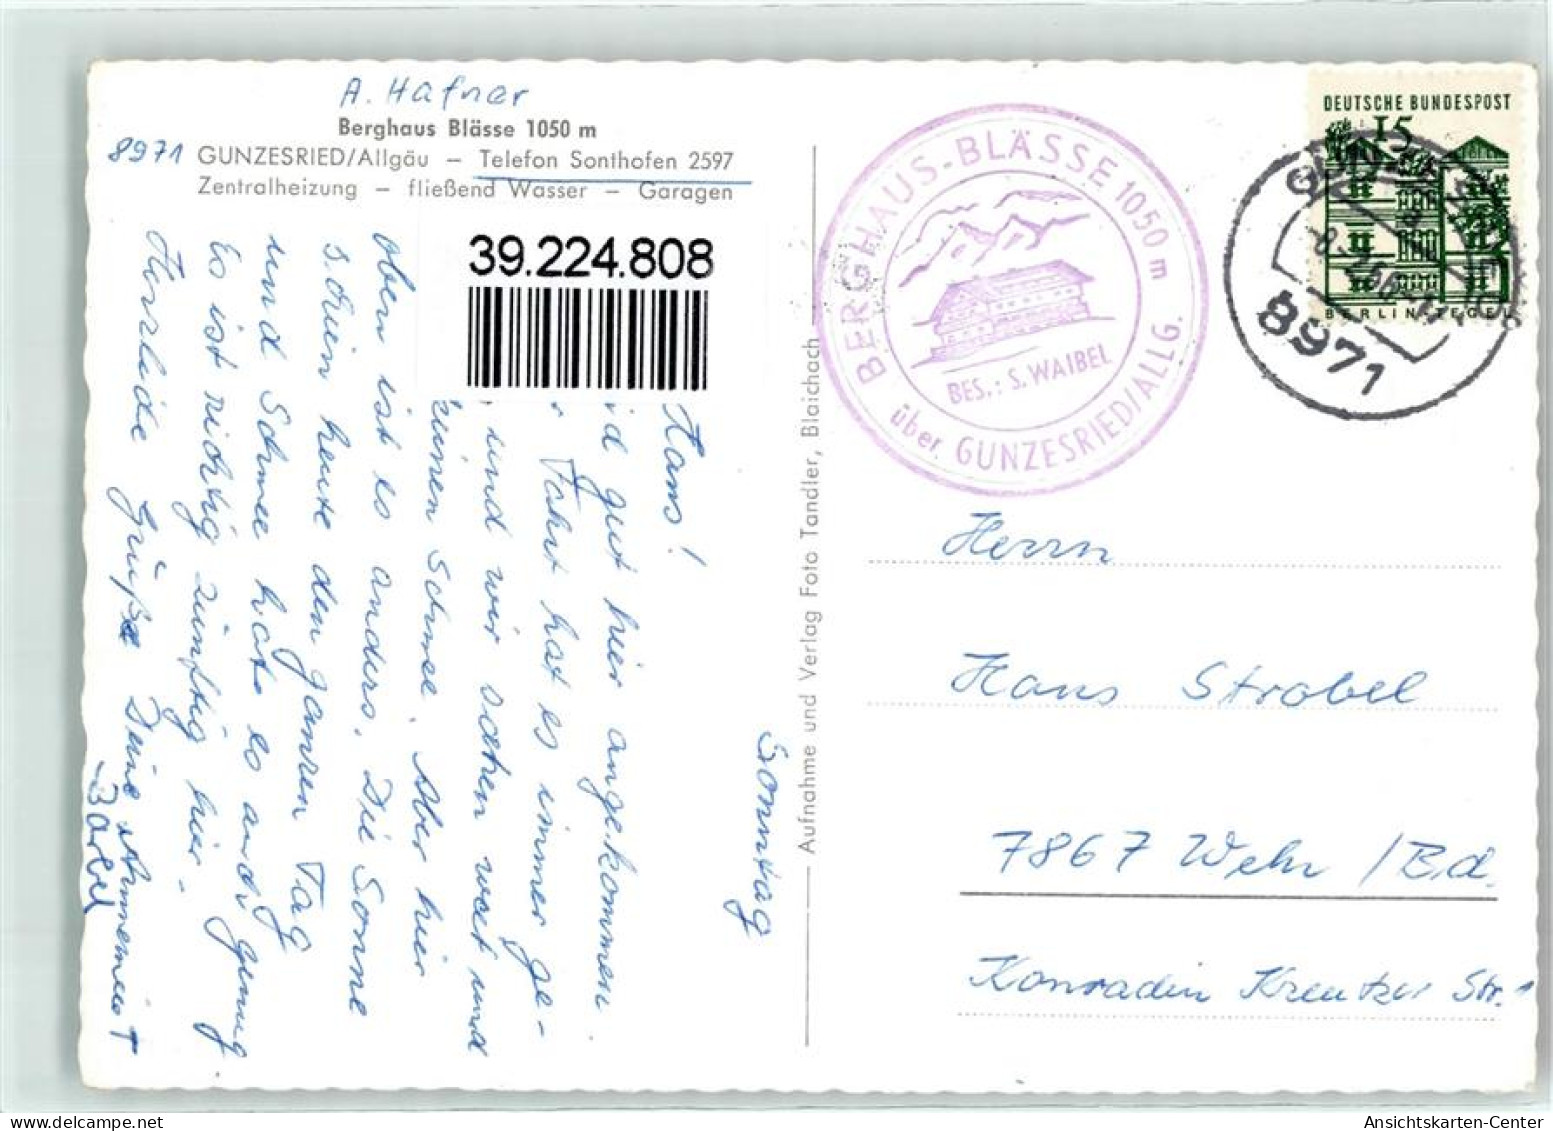 A. Hafner
Berghaus Blässe 1050 m
8971 GUNZESRIED/Allgäu – Telefon Sonthofen 2597
Zentralheizung – fließend Wasser – Garagen
39.224.808
Sonntag
Hans!
gut hier angekommen.
Fahrt hat es immer ge-
und wir sahen weit und
keinen Schnee. Aber hier
oben ist es anders. Die Sonne
schien heute den ganzen Tag
und Schnee hats es auch genug
Es ist richtig zünftig hier.
Herzliche Grüße Deine Annemarie +
Bärbel
Aufnahme und Verlag Foto Tandler, Blaichach
BERGHAUS-BLÄSSE 1050 m
BES.: S. WAIBEL
über GUNZESRIED/ALLG.
DEUTSCHE BUNDESPOST
15
BERLIN-TEGEL
GUNZESRIED
a
8971
Herrn
Hans Strobel
7867 Wehr /Bd.
Konradin Kreutzer Str. 1
Ansichtskarten-Center